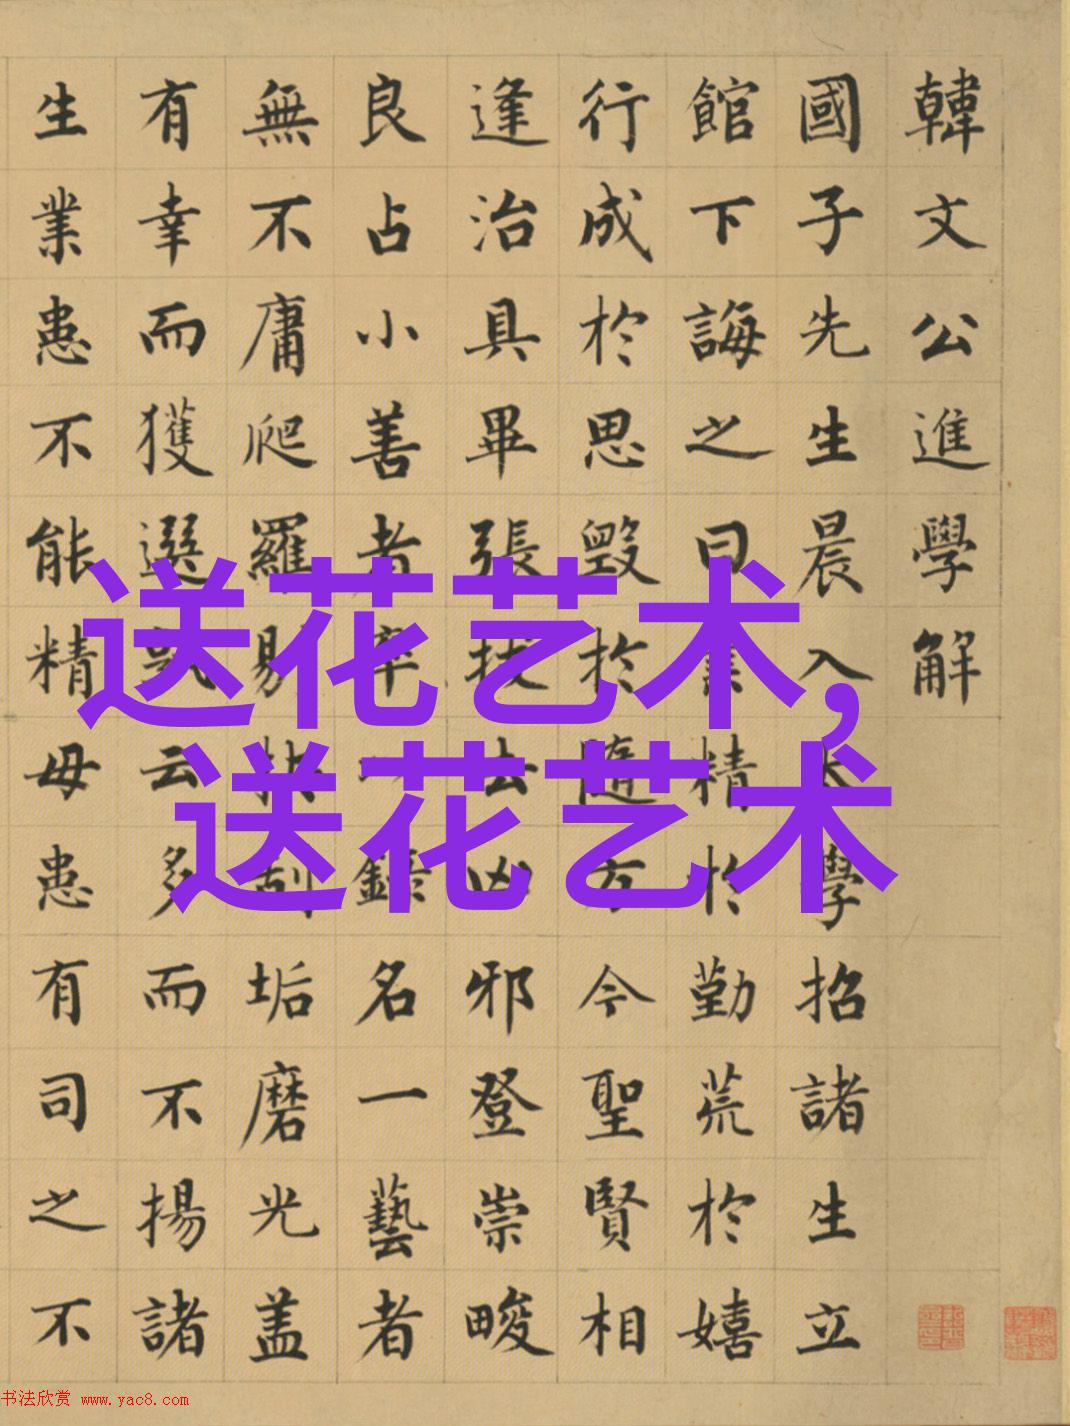 韓文公進學解
國子先生晨入太學招諸生立
館下誨之曰業精於勤荒於嬉
行成於思毀於隨方今聖賢相
逢治具畢張拔去凶邪登崇畯
良占小善者率以錄名一藝者
無不庸爬羅剔抉刮垢磨光盖
有幸而獲選孰云多而不揚諸
生業患不能精毋患有司之不
送花艺术，
送花艺术
书法欣赏 www.yac8.com